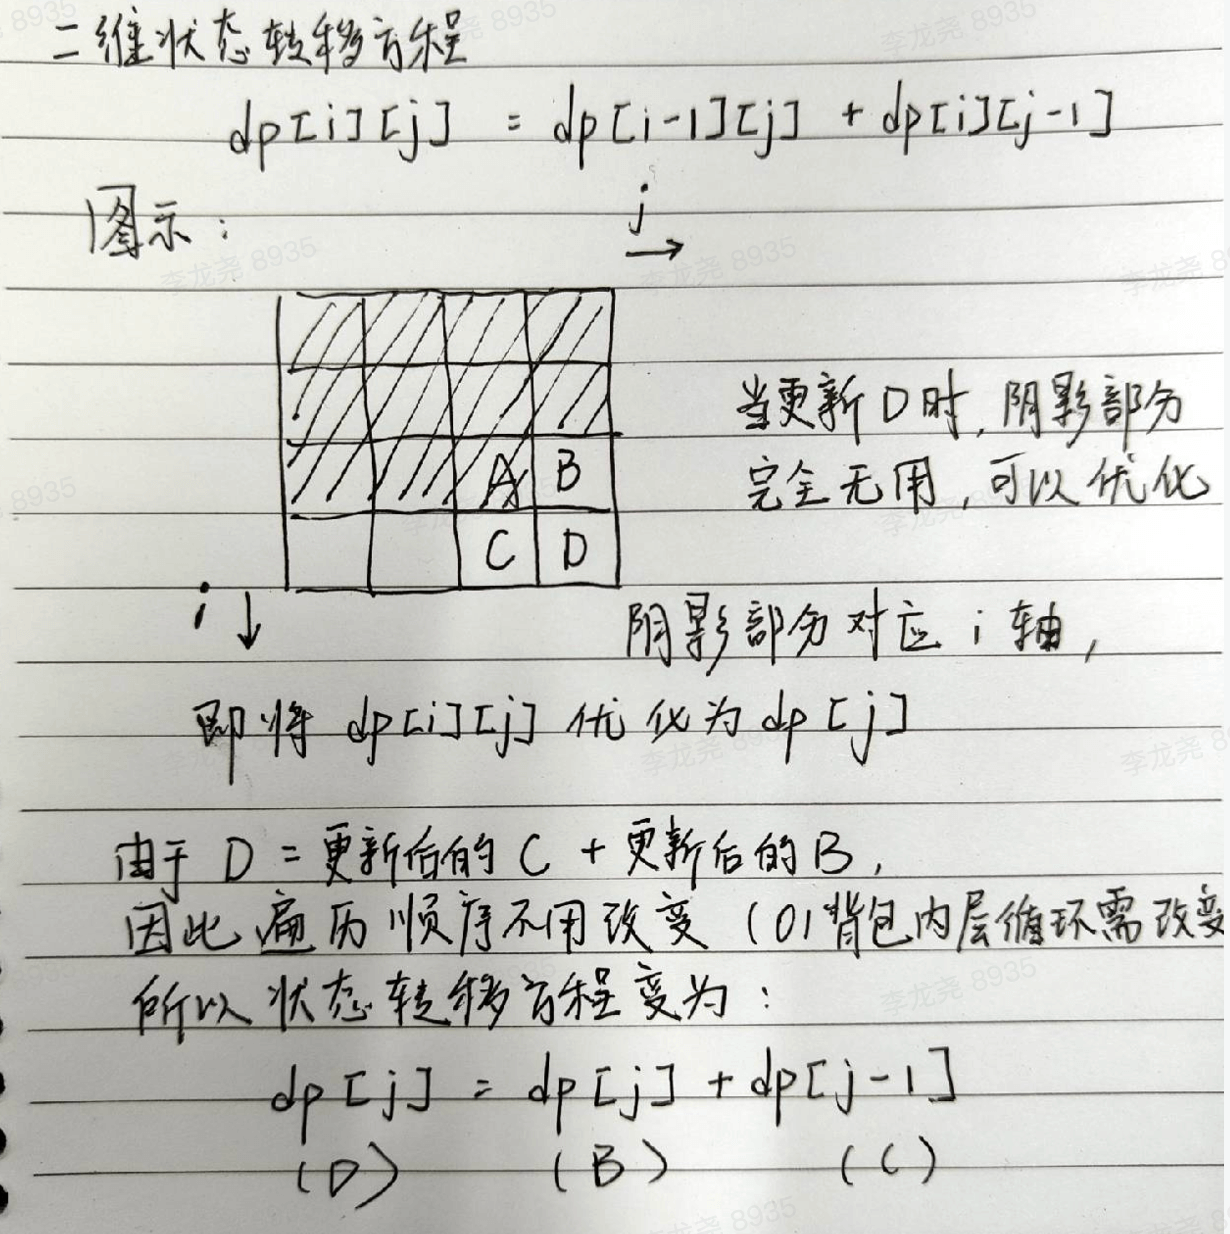 二维状态转移方程
dp[i][j] = dp[i-1][j] + dp[i][j-1]
图示：
j
当更新D时，阴影部分
A B
完全无用，可以优化
C D
i
阴影部分对应i轴，
即将 dp[i][j] 优化为 dp[j]
由于 D = 更新后的 C + 更新后的 B，
因此遍历顺序不用改变（01背包内层循环需改变
所以状态转移方程变为：
dp[j] = dp[j] + dp[j-1]
(D) (B) (C)
李龙尧 8935